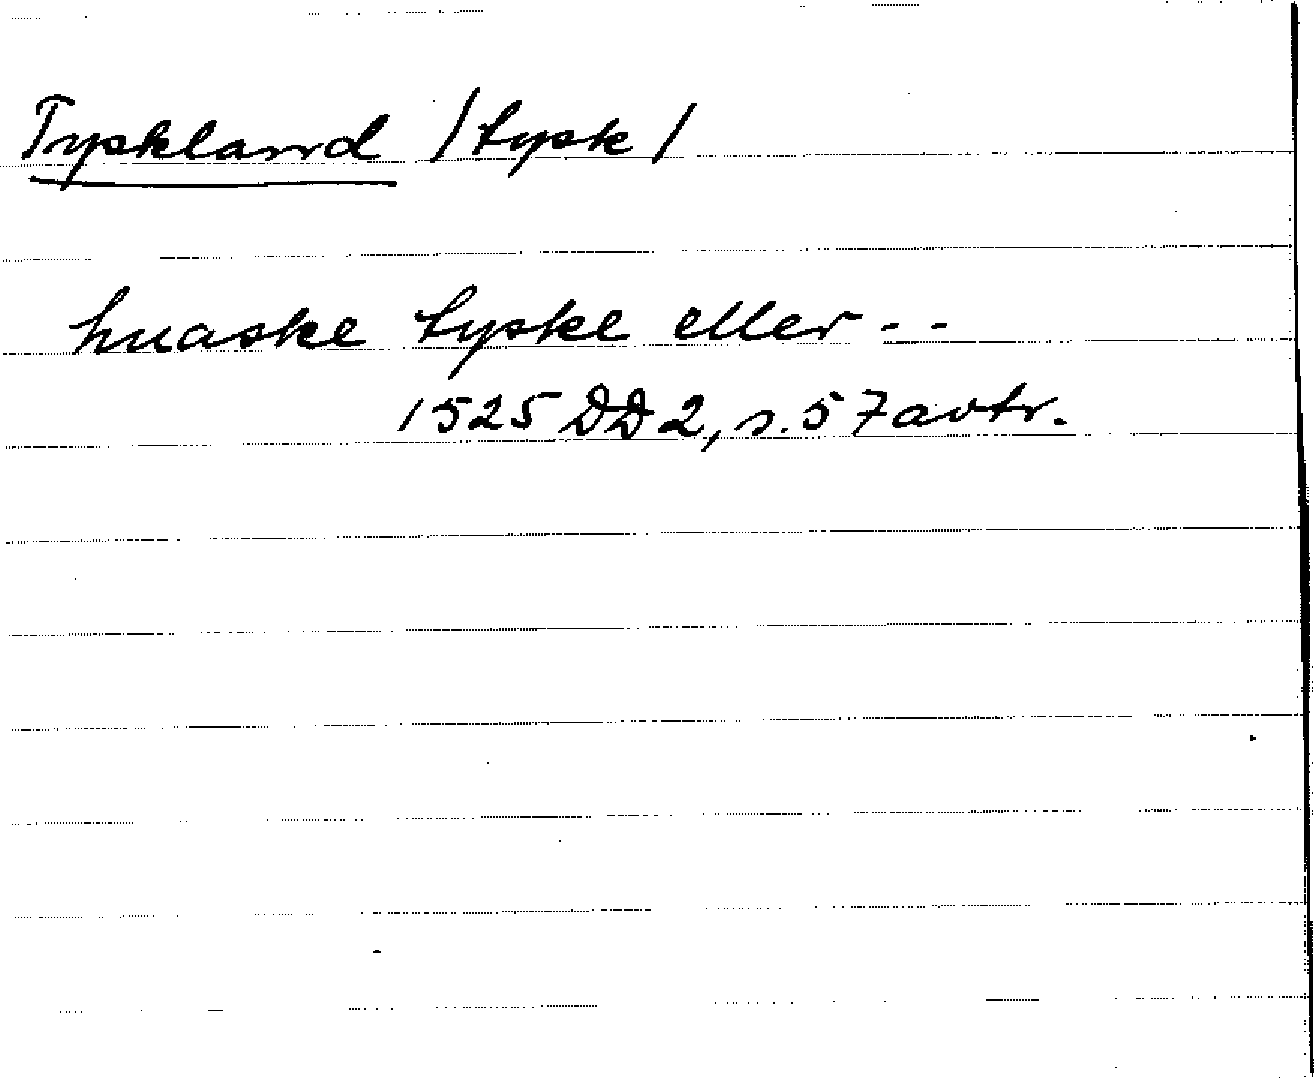 Tyskland /tysk/
huaske tyske eller --
1525 DD2, s. 57 avtr.